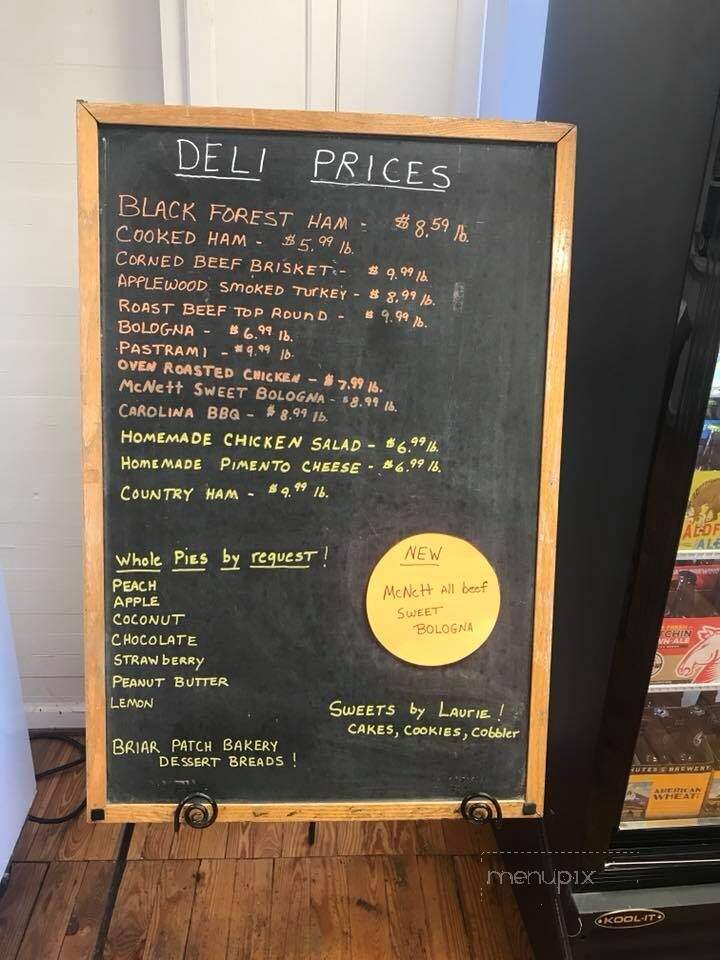 DELI PRICES
BLACK FOREST HAM - $8.59 lb.
COOKED HAM - $5.99 lb.
CORNED BEEF BRISKET - $9.99 lb
APPLEWOOD SMOKED TURKEY - $8.99 lb.
ROAST BEEF TOP ROUND - $9.99 lb.
BOLOGNA - $6.99 lb.
PASTRAMI - $9.99 lb
OVEN ROASTED CHICKEN - $7.99 lb.
McNett SWEET BOLOGNA - $8.99 lb.
CAROLINA BBQ - $8.99 lb.
HOMEMADE CHICKEN SALAD - $6.99 lb.
HOMEMADE PIMENTO CHEESE - $6.99 lb.
COUNTRY HAM - $9.99 lb.
Whole Pies by request!
PEACH
APPLE
COCONUT
CHOCOLATE
STRAWberry
PEANUT BUTTER
LEMON
NEW
McNett All beef
SWEET
BOLOGNA
SWEETS by LAURIE!
CAKES, COOKIES, Cobbler
BRIAR PATCH BAKERY
DESSERT BREADS!
AMERICAN
WHEAT
menupix
KOOL-IT